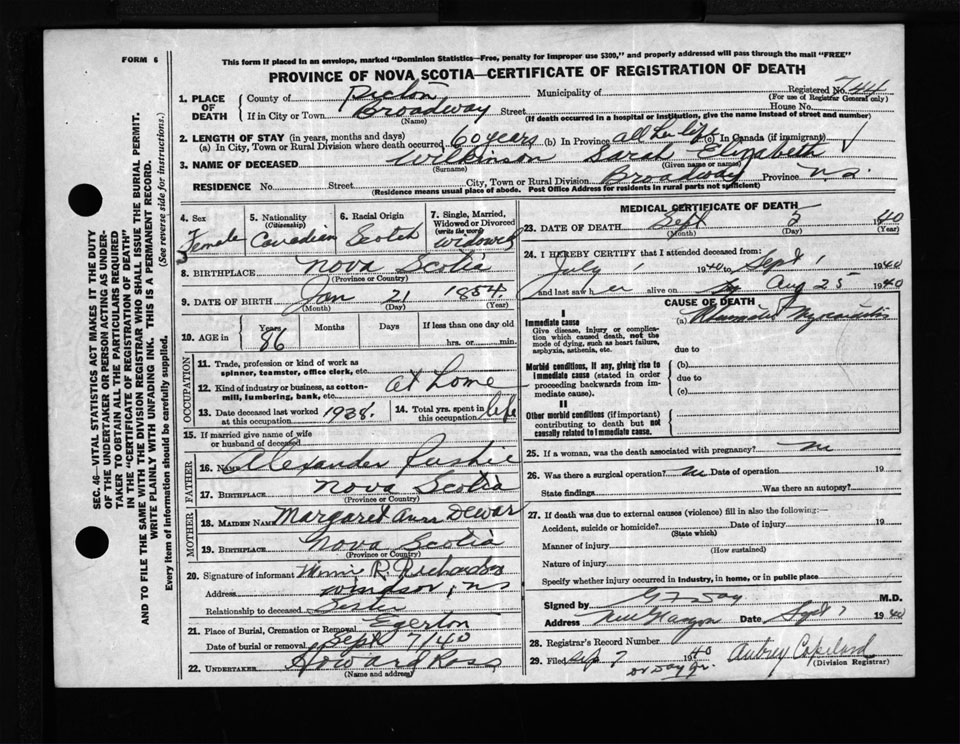 FORM 6
This form if placed in an envelope, marked "Dominion Statistics—Free, penalty for improper use $300," and properly addressed will pass through the mail "FREE"
PROVINCE OF NOVA SCOTIA—CERTIFICATE OF REGISTRATION OF DEATH
Registered No. 744
(For use of Registrar General only)
1. PLACE OF DEATH
County of Pictou Municipality of
If in City or Town Broadway Street House No.
(Name) (If death occurred in a hospital or institution, give the name instead of street and number)
2. LENGTH OF STAY (in years, months and days)
(a) In City, Town or Rural Division where death occurred 60 years (b) In Province all her life (c) In Canada (if immigrant)
3. NAME OF DECEASED Wilkinson Sarah Elizabeth
(Surname) (Given name or names)
RESIDENCE No. Street City, Town or Rural Division Broadway Province N.S.
(Residence means usual place of abode. Post Office Address for residents in rural parts not sufficient)
4. Sex Female
5. Nationality (Citizenship) Canadian
6. Racial Origin Scotch
7. Single, Married, Widowed or Divorced (write the word) widowed
8. BIRTHPLACE Nova Scotia
(Province or Country)
9. DATE OF BIRTH Jan 21 1854
(Month) (Day) (Year)
10. AGE in Years Months Days If less than one day old
86 hrs. or min.
OCCUPATION
11. Trade, profession or kind of work as spinner, teamster, office clerk, etc.
12. Kind of industry or business, as cotton-mill, lumbering, bank, etc. at home
13. Date deceased last worked at this occupation 1938.
14. Total yrs. spent in this occupation life
15. If married give name of wife or husband of deceased
FATHER
16. Name Alexander
17. BIRTHPLACE Nova Scotia
(Province or Country)
MOTHER
18. MAIDEN NAME Margaret Ann Dewar
19. BIRTHPLACE Nova Scotia
(Province or Country)
20. Signature of informant R. Richardson
Address Windsor, NS
Relationship to deceased Sister
21. Place of Burial, Cremation or Removal Egerton
Date of burial or removal Sept 7/40
22. UNDERTAKER Howard Ross
(Name and address)
MEDICAL CERTIFICATE OF DEATH
23. DATE OF DEATH Sept 5 1940
(Month) (Day) (Year)
24. I HEREBY CERTIFY that I attended deceased from:
July 1 1940 to Sept 1 1940
and last saw her alive on Aug 25 1940
CAUSE OF DEATH
I
Immediate cause
Give disease, injury or complication which caused death, not the mode of dying, such as heart failure, asphyxia, asthenia, etc.
(a) Myocarditis
due to
Morbid conditions, if any, giving rise to immediate cause (stated in order proceeding backwards from immediate cause).
(b)
due to
(c)
II
Other morbid conditions (if important) contributing to death but not causally related to immediate cause.
25. If a woman, was the death associated with pregnancy? no
26. Was there a surgical operation? no Date of operation 19
State findings Was there an autopsy?
27. If death was due to external causes (violence) fill in also the following:—
Accident, suicide or homicide? Date of injury 19
(State which)
Manner of injury
(How sustained)
Nature of injury
Specify whether injury occurred in industry, in home, or in public place
Signed by Day M.D.
Address New Glasgow Date Sept 7 1940
28. Registrar's Record Number
29. Filed Sep 7 1940 Aubrey Copeland
(Division Registrar)
SEC. 46—VITAL STATISTICS ACT MAKES IT THE DUTY
OF THE UNDERTAKER OR PERSON ACTING AS UNDER-
TAKER TO OBTAIN ALL THE PARTICULARS REQUIRED
IN THE "CERTIFICATE OF REGISTRATION OF DEATH"
AND TO FILE THE SAME WITH THE DIVISION REGISTRAR WHO SHALL ISSUE THE BURIAL PERMIT.
WRITE PLAINLY WITH UNFADING INK. THIS IS A PERMANENT RECORD.
Every item of information should be carefully supplied. (See reverse side for instructions.)